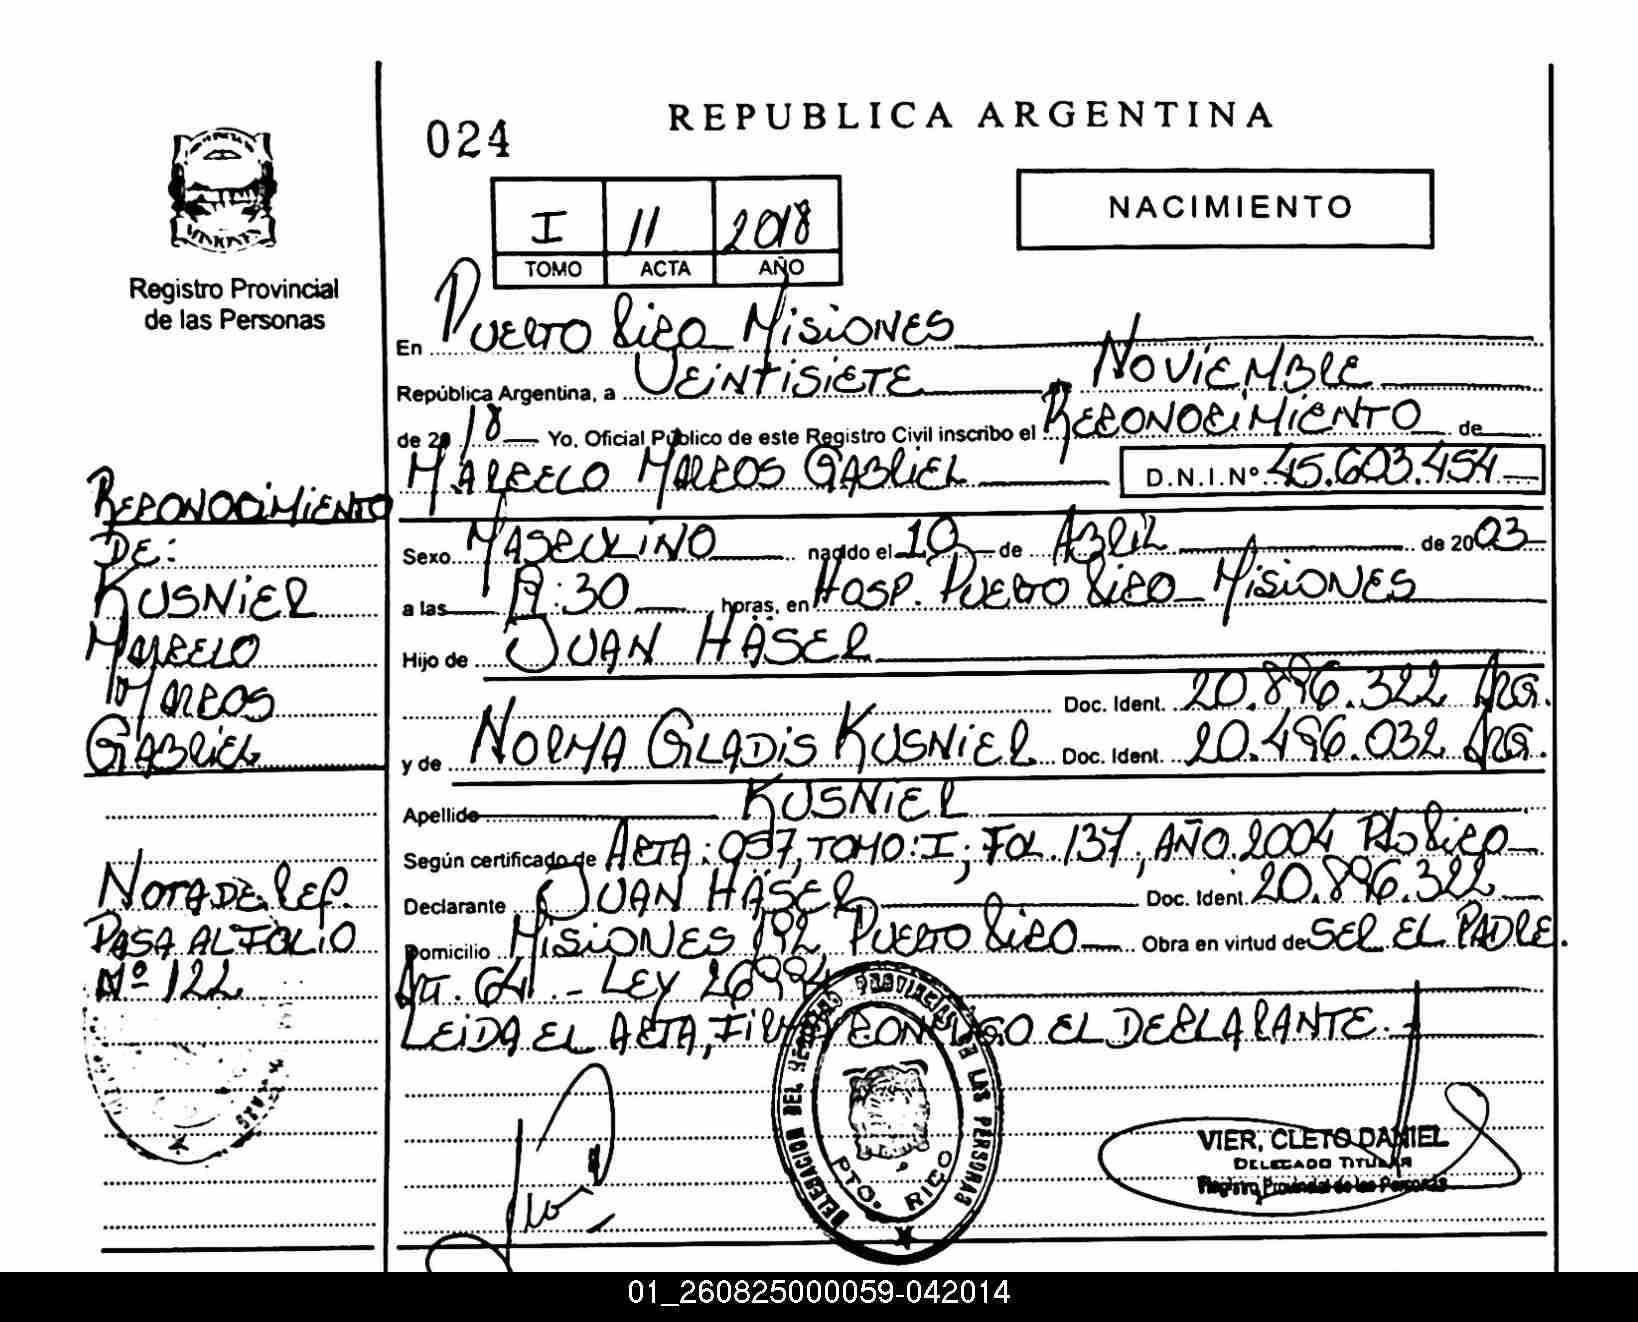 REPUBLICA ARGENTINA
024
NACIMIENTO
I 11 2018
TOMO ACTA AÑO
MISIONES
Registro Provincial
de las Personas
En Puerto Rico Misiones
República Argentina, a Veintisiete Noviembre
de 2018 Yo, Oficial Público de este Registro Civil inscribo el Reconocimiento de
Marcelo Marcos Gabriel D.N.I.Nº 45.603.454
Sexo Masculino nacido el 10 de Abril de 2003
a las :30 horas, en Hosp. Puerto Rico Misiones
Hijo de Juan Häser
Doc. Ident. 20.896.322 Arg.
y de Norma Gladis Kusnier Doc. Ident. 20.496.032 Arg.
Apellido Kusnier
Según certificado de Acta: 057, Tomo: I; Fol. 137, Año 2004 Pto Rico
Declarante Juan Häser Doc. Ident. 20.896.322
Domicilio Misiones 192 Puerto Rico Obra en virtud de Ser el Padre.
Art. 64 - Ley 26994
Leida el Acta, Firma Conmigo el Declarante.
Reconocimiento
de:
Kusnier
Marcelo
Marcos
Gabriel
Nota de Ref.
Pasa al Folio
Nº 122
DELEGACION DEL REGISTRO PROVINCIAL DE LAS PERSONAS
PTO. RICO
VIER, CLETO DANIEL
DELEGADO TITULAR
Registro Provincial de las Personas
01_260825000059-042014